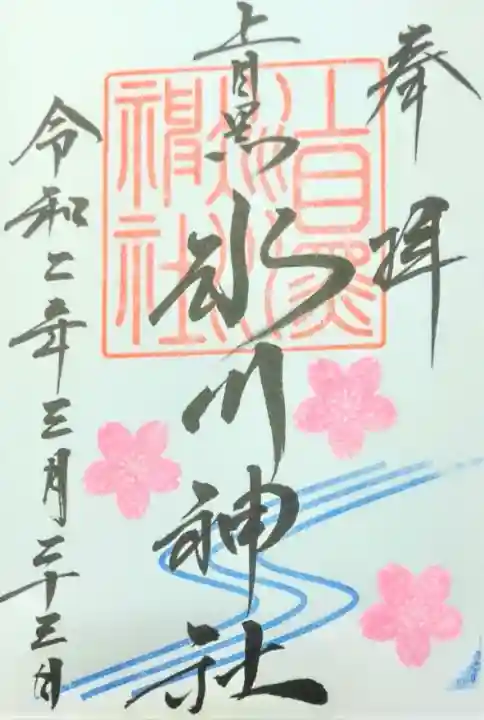 奉拝
上目黒氷川神社
令和二年三月二十三日
上目黒氷川神社